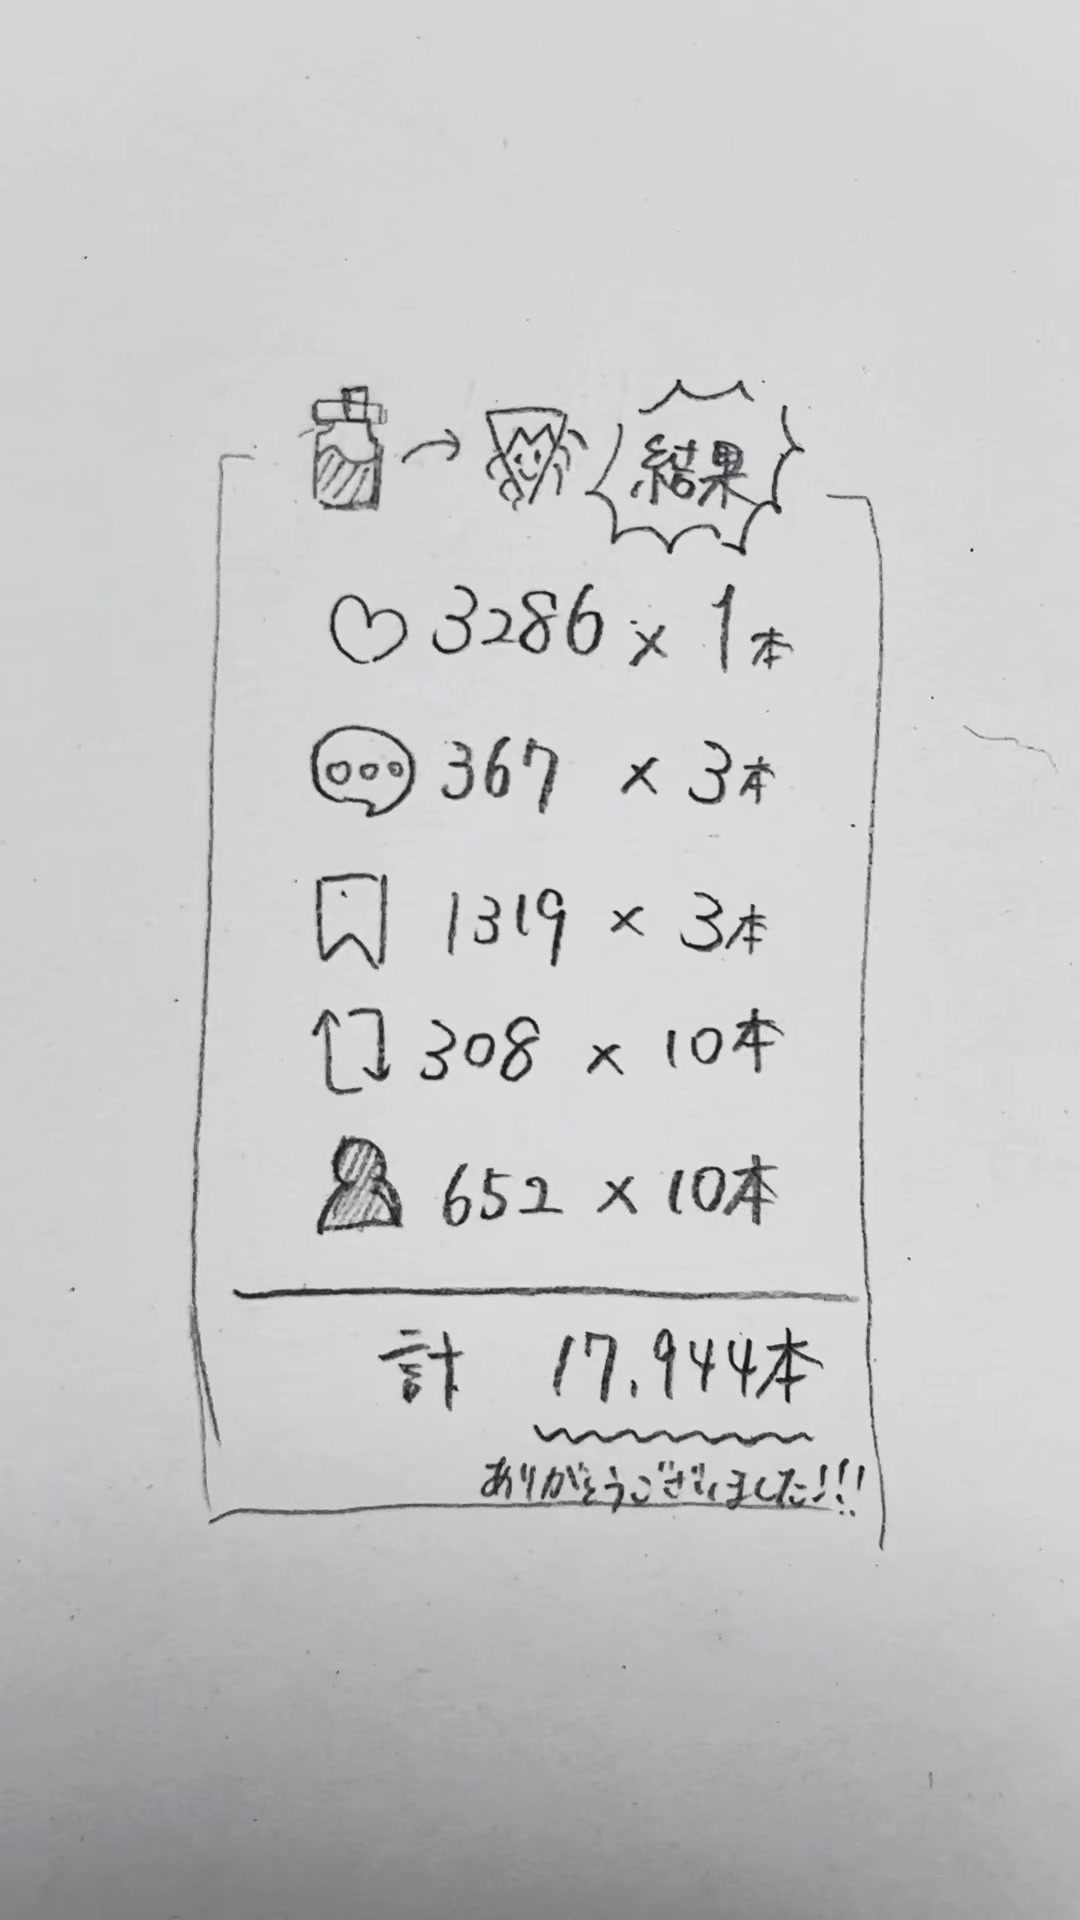 結果
3286 × 1本
367 × 3本
1319 × 3本
308 × 10本
652 × 10本
計 17,944本
ありがとうございました!!!